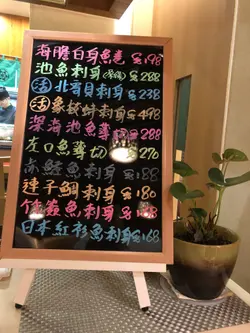 海膽白身魚卷 $198
池魚刺身 $288
活 北寄貝刺身 $238
活 象拔蚌刺身 $498
深海池魚薄切 $288
左口魚薄切 $270
赤鯥魚刺身 $188
連子鯛刺身 $180
竹簽魚刺身 $168
日本紅衫魚刺身 $168